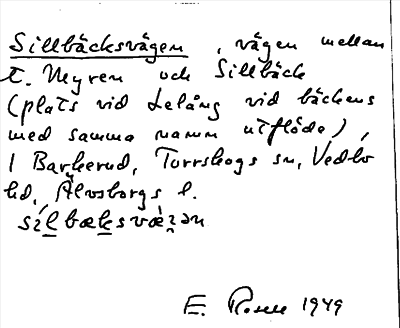 Sillbäcksvägen, vägen mellan
t. Myren och Sillbäck
(plats vid Lelång vid bäckens
med samma namn utflöde),
i Barkerud, Torrskogs sn, Vedbo
hd, Älvsborgs l.
E. Rosen 1949